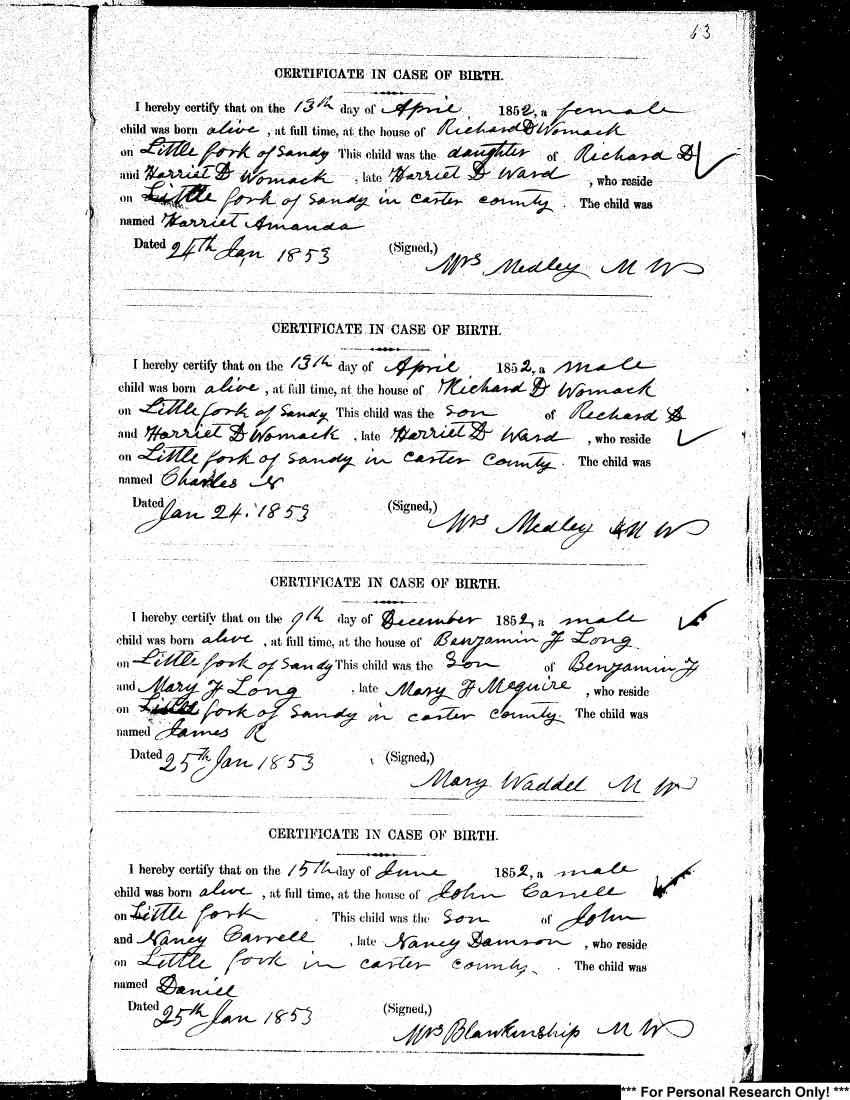 63
CERTIFICATE IN CASE OF BIRTH.
I hereby certify that on the 13th day of April 1852, a female
child was born alive, at full time, at the house of Richard D Womack
on Little fork of Sandy This child was the daughter of Richard D
and Harriet D Womack, late Harriet D Ward, who reside
on Little fork of Sandy in carter county. The child was
named Harriet Amanda
Dated 24th Jan 1853 (Signed,)
Mrs Medley M W
CERTIFICATE IN CASE OF BIRTH.
I hereby certify that on the 13th day of April 1852, a male
child was born alive, at full time, at the house of Richard D Womack
on Little fork of Sandy This child was the Son of Richard D
and Harriet D Womack, late Harriet D Ward, who reside
on Little fork of Sandy in carter county. The child was
named Charles N
Dated Jan 24. 1853 (Signed,)
Mrs Medley M W
CERTIFICATE IN CASE OF BIRTH.
I hereby certify that on the 9th day of December 1852, a male
child was born alive, at full time, at the house of Benjamin F Long
on Little fork of Sandy This child was the Son of Benjamin F
and Mary F Long, late Mary F Meguire, who reside
on Little fork of Sandy in carter county. The child was
named James R
Dated 25th Jan 1853 (Signed,)
Mary Waddel M W
CERTIFICATE IN CASE OF BIRTH.
I hereby certify that on the 15th day of June 1852, a male
child was born alive, at full time, at the house of John Carrell
on Little fork. This child was the Son of John
and Nancy Carrell, late Nancy Damron, who reside
on Little fork in carter county. The child was
named Daniel
Dated 25th Jan 1853 (Signed,)
Mrs Blankinship M W
*** For Personal Research Only! ***